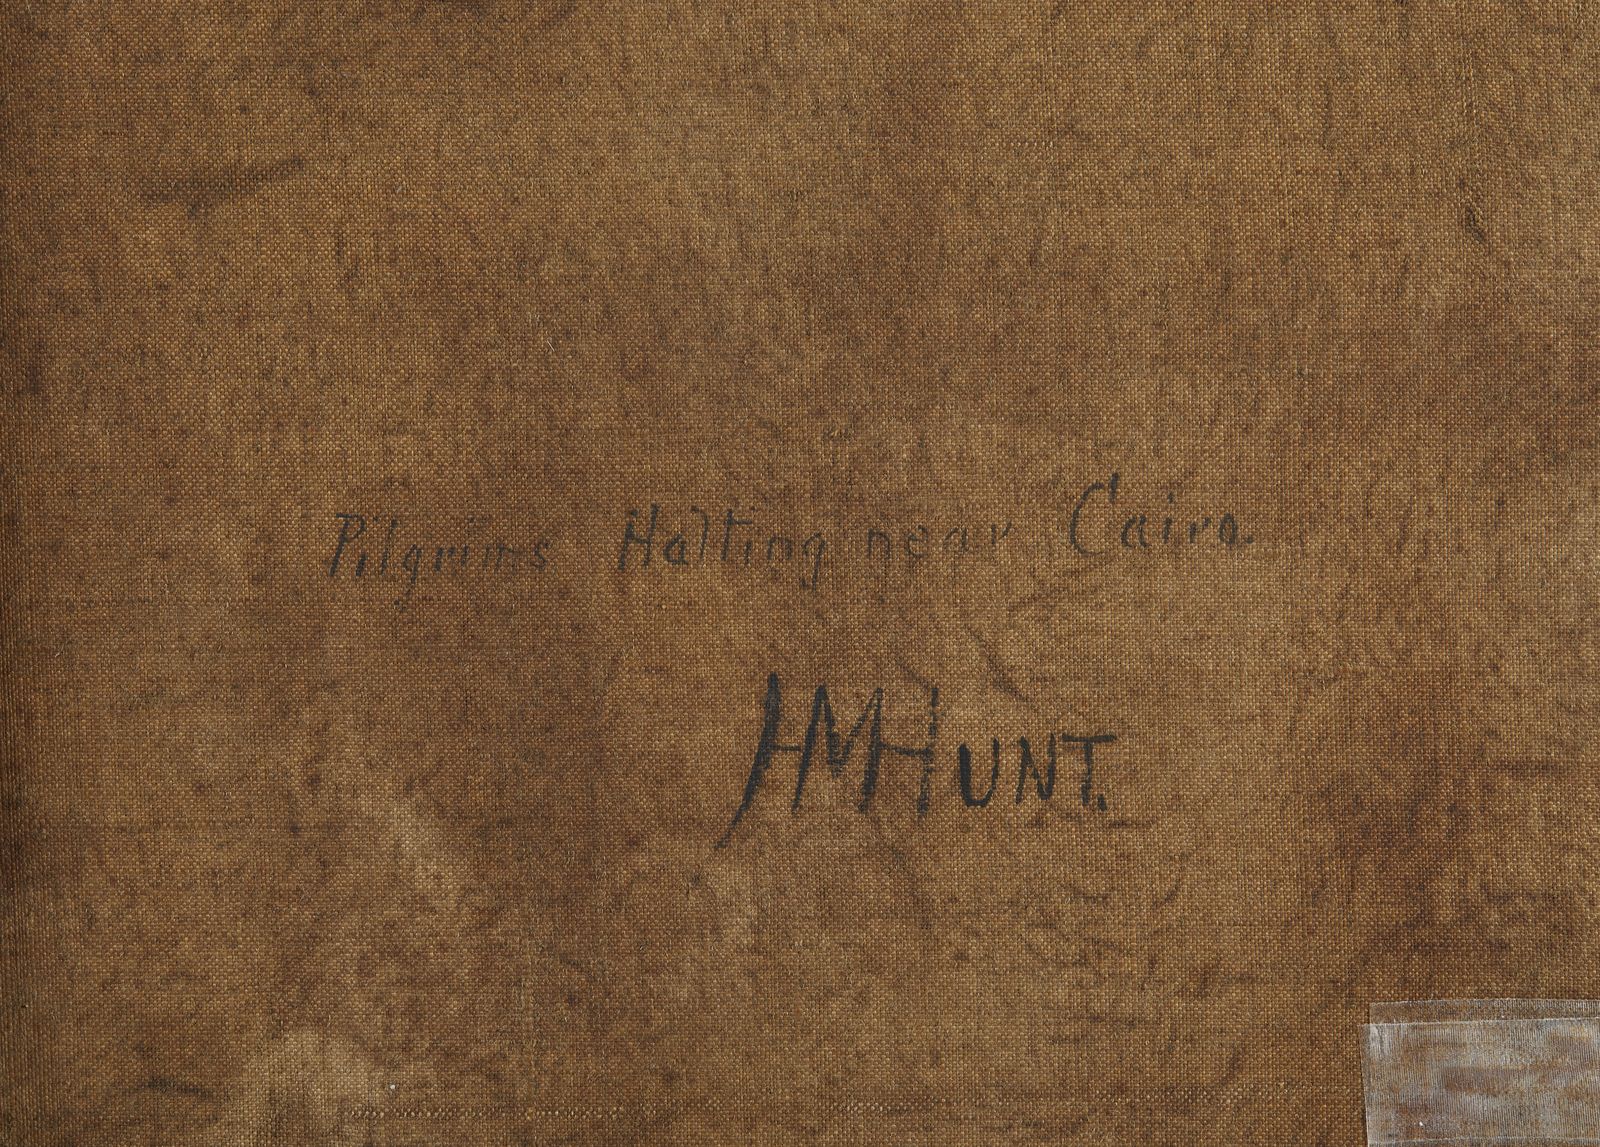 Pilgrims Halting near Cairo.
HMHUNT.